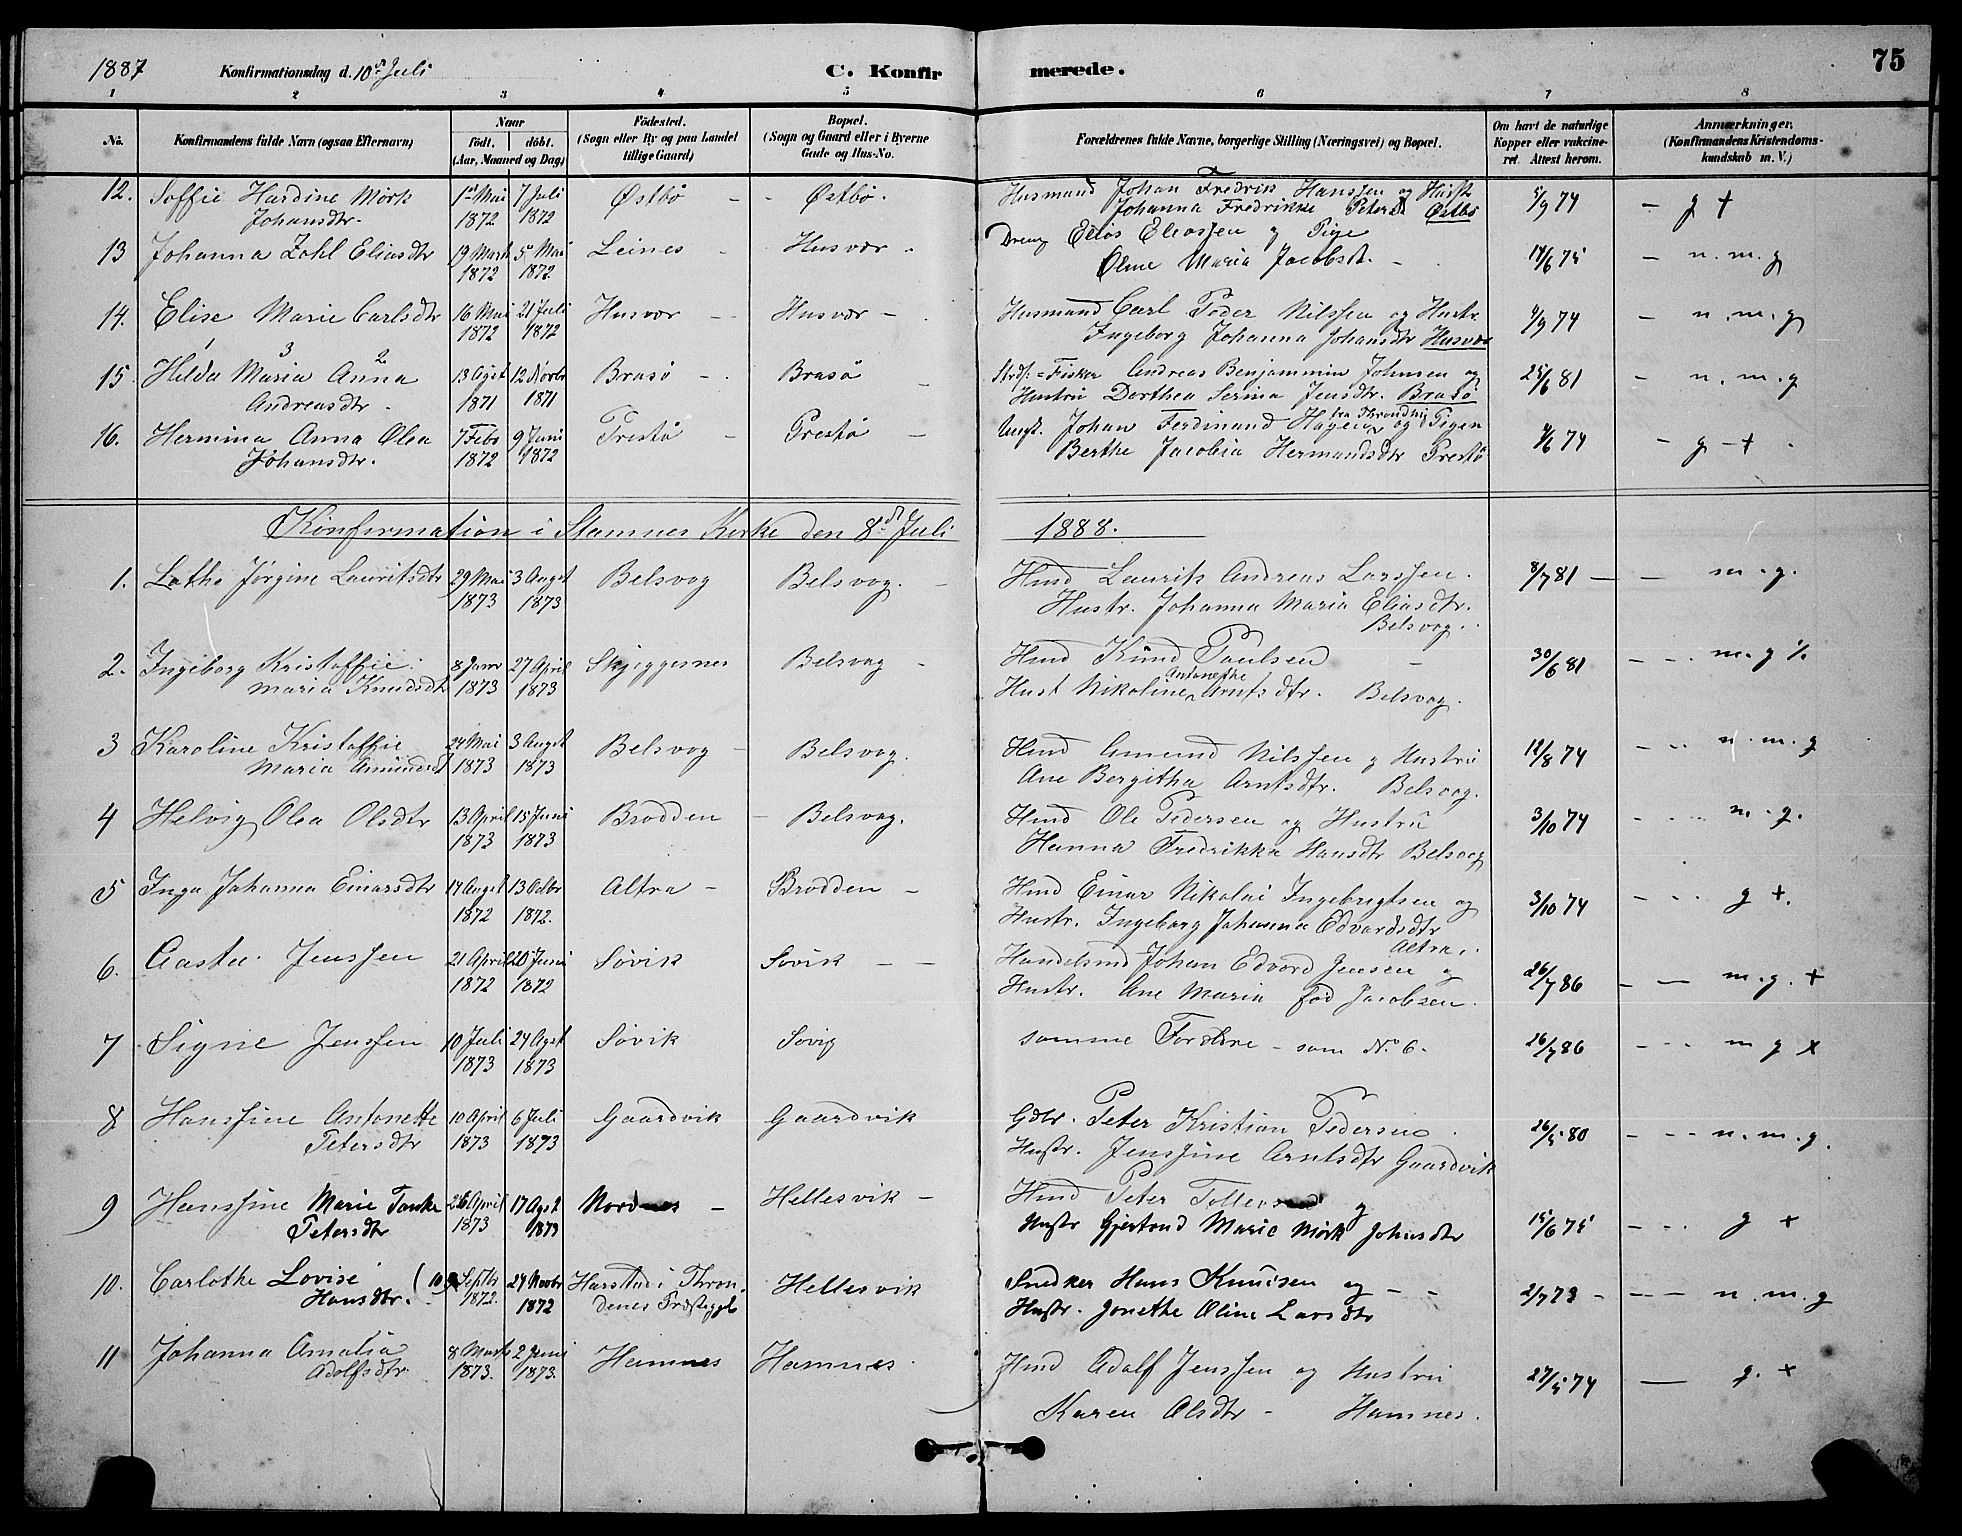 1887 Konfirmationsdag d. 10de Juli C. Konfirmerede. 75
1 2 3 4 5 6 7 8
No. Konfirmandens fulde Navn (ogsaa Efternavn) Naar födt. döbt. (Aar, Maaned og Dag) Födested. (Sogn eller By og paa Landet tillige Gaard) Bopæl. (Sogn og Gaard eller i Byerne Gade og Hus-No. Forældrenes fulde Navne, borgerlige Stilling (Næringsvei) og Bopæl. Om havt de naturlige Kopper eller vakcineret. Attest herom. Anmærkninger. (Konfirmandens Kristendomskundskab m. V.)
12. Soffie Hardine Mörk 1ste Mai 7 Juli Østbö - - Østbö. Husmand Johan Fredrik Hanssen og Hustr 5/9 74 - g +
Johansdtr. 1872 1872 Johanna Fredrikke Petersd Østbö
13 Johanna Zahl Eliasdtr 19 Marts 5 Mai Leines - Husvær - Dreng Elias Eliassen og Pige 14/6 75 - n. m. g
1872 1872 Oline Maria Jacobsdt. -
14. Elise Marie Carlsdtr 16 Mai 21 Juli Husvær - Husvær - Husmand Carl Peder Nilssen og Hustr. 4/9 74 - n. m. g
1872 1872 Ingeborg Johanna Johansdtr Husvær
3 2
15. Hilda Maria Anna 13 Agst 12 Novbr Brasö - Brasö - Strds. = Fisker Andreas Benjammin Johnsen og 25/6 81 - n. m. g
Andreasdtr. 1871 1871 Hustru Dorthea Serina Jensdtr. Brasö
16. Hermina Anna Olea 7 Febr 9 Juni Prestö - Prestö - Ungk. Johan Ferdinand Hagen fra Throndhj og Pigen 4/6 74 - g - + -
Johansdtr. 1872 1872 Berthe Jacobia Hermandsdtr Prestö
Konfirmation i Stamnes Kirke den 8de Juli 1888.
1. Lathe Jørgine Lauritsdtr 29 Mai 3 Augst Belsvog Belsvog. - Hmd Laurits Andreas Larssen. 8/7 81 - - m. g.
1873 1873 Hustr. Johanna Maria Eliasdtr.
Belsvog.
2. Ingeborg Kristoffie 8 Janr 27 April Skjeggesnes Belsvog - Hmd Knud Paulsen - 30/6 81 - - m. g %
Maria Knudsdtr 1873 1873 Hust Nikoline Antonethe Arntsdtr. Belsvog.
3 Karoline Kristoffie 24 Mai 3 Augst Belsvog - Belsvog. Hmd Amund Nilssen og Hustru 12/8 74 - - n. m. g
Maria Amundsdt 1873 1873 Ane Bergitha Arntsdtr. Belsvog.
4 Helvig Olea Olsdtr 13 April 15 Juni Brodden - Belsvog. Hmd Ole Pedersen og Hustru 3/10 74 - - m. g.
1873 1873 Hanna Fredrikka Hansdtr Belsvog
5 Inga Johanna Einarsdtr 14 Augst 13 Octbr Altra - Brodden - Hmd Einar Nikolai Ingebrigtsen og 3/10 74 - - g +.
1872 1872. Hustr. Ingeborg Johanna Edvardsdtr
Altra.
6. Aasta Jenssen 21 April 20 Juni Søvik Søvik - - Handelsmd Johan Edvard Jensen og 26/7 86 - - m. g. +
1872 1872 Hustr. Ane Maria fød Jacobsen.
7 Signe Jenssen 10 Juli 24 Agst Søvik Søvig samme Forældre - som No 6. 26/7 86 - - m g x
1873 1873
8 Hanssine Antonette 10 April 6 Juli Gaardvik Gaardvik Gdbr. Peter Kristian Pedersen. 26/5 80 - - n. m. g.
Petersdtr 1873 1873 Hustr. Jenssine Arntsdtr Gaardvik
9 Hanssine Marie Tanke 26 April 17 Agst Nordnes - Hellesvik - Hmd Peter Tollevsen og 15/6 75 - - g +
Petersdtr 1873 1873 Hustr Gjertrud Marie Mørk Johnsdtr
10. Carlothe Lovise 10 Septbr 24 Novbr Harstad i Thron- Hellesvik Snedker Hans Knudsen og - - 2/7 73 - - n. m. g
Hansdtr. 1872. 1872 denes Præstegjeld Hustr. Jonethe Oline Larsdtr
11 Johanna Amalia 8 Marts 2 Juni Hamnes Hamnes. Hmd Adolf Jenssen og Hustru 27/5 74 - g. +
Adolfsdtr 1873. 1873. Karen Olsdtr - Hamnes.